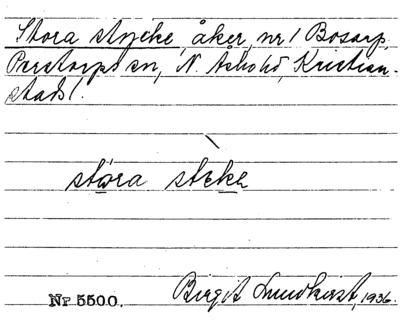 Stora stycke, åker, nr 1 Bosarp,
Perstorps sn, N. Åsbohd, Kristian-
stads l.
stóra stɛkə
Nr 5500. Birgit Lundkvist, 1936.